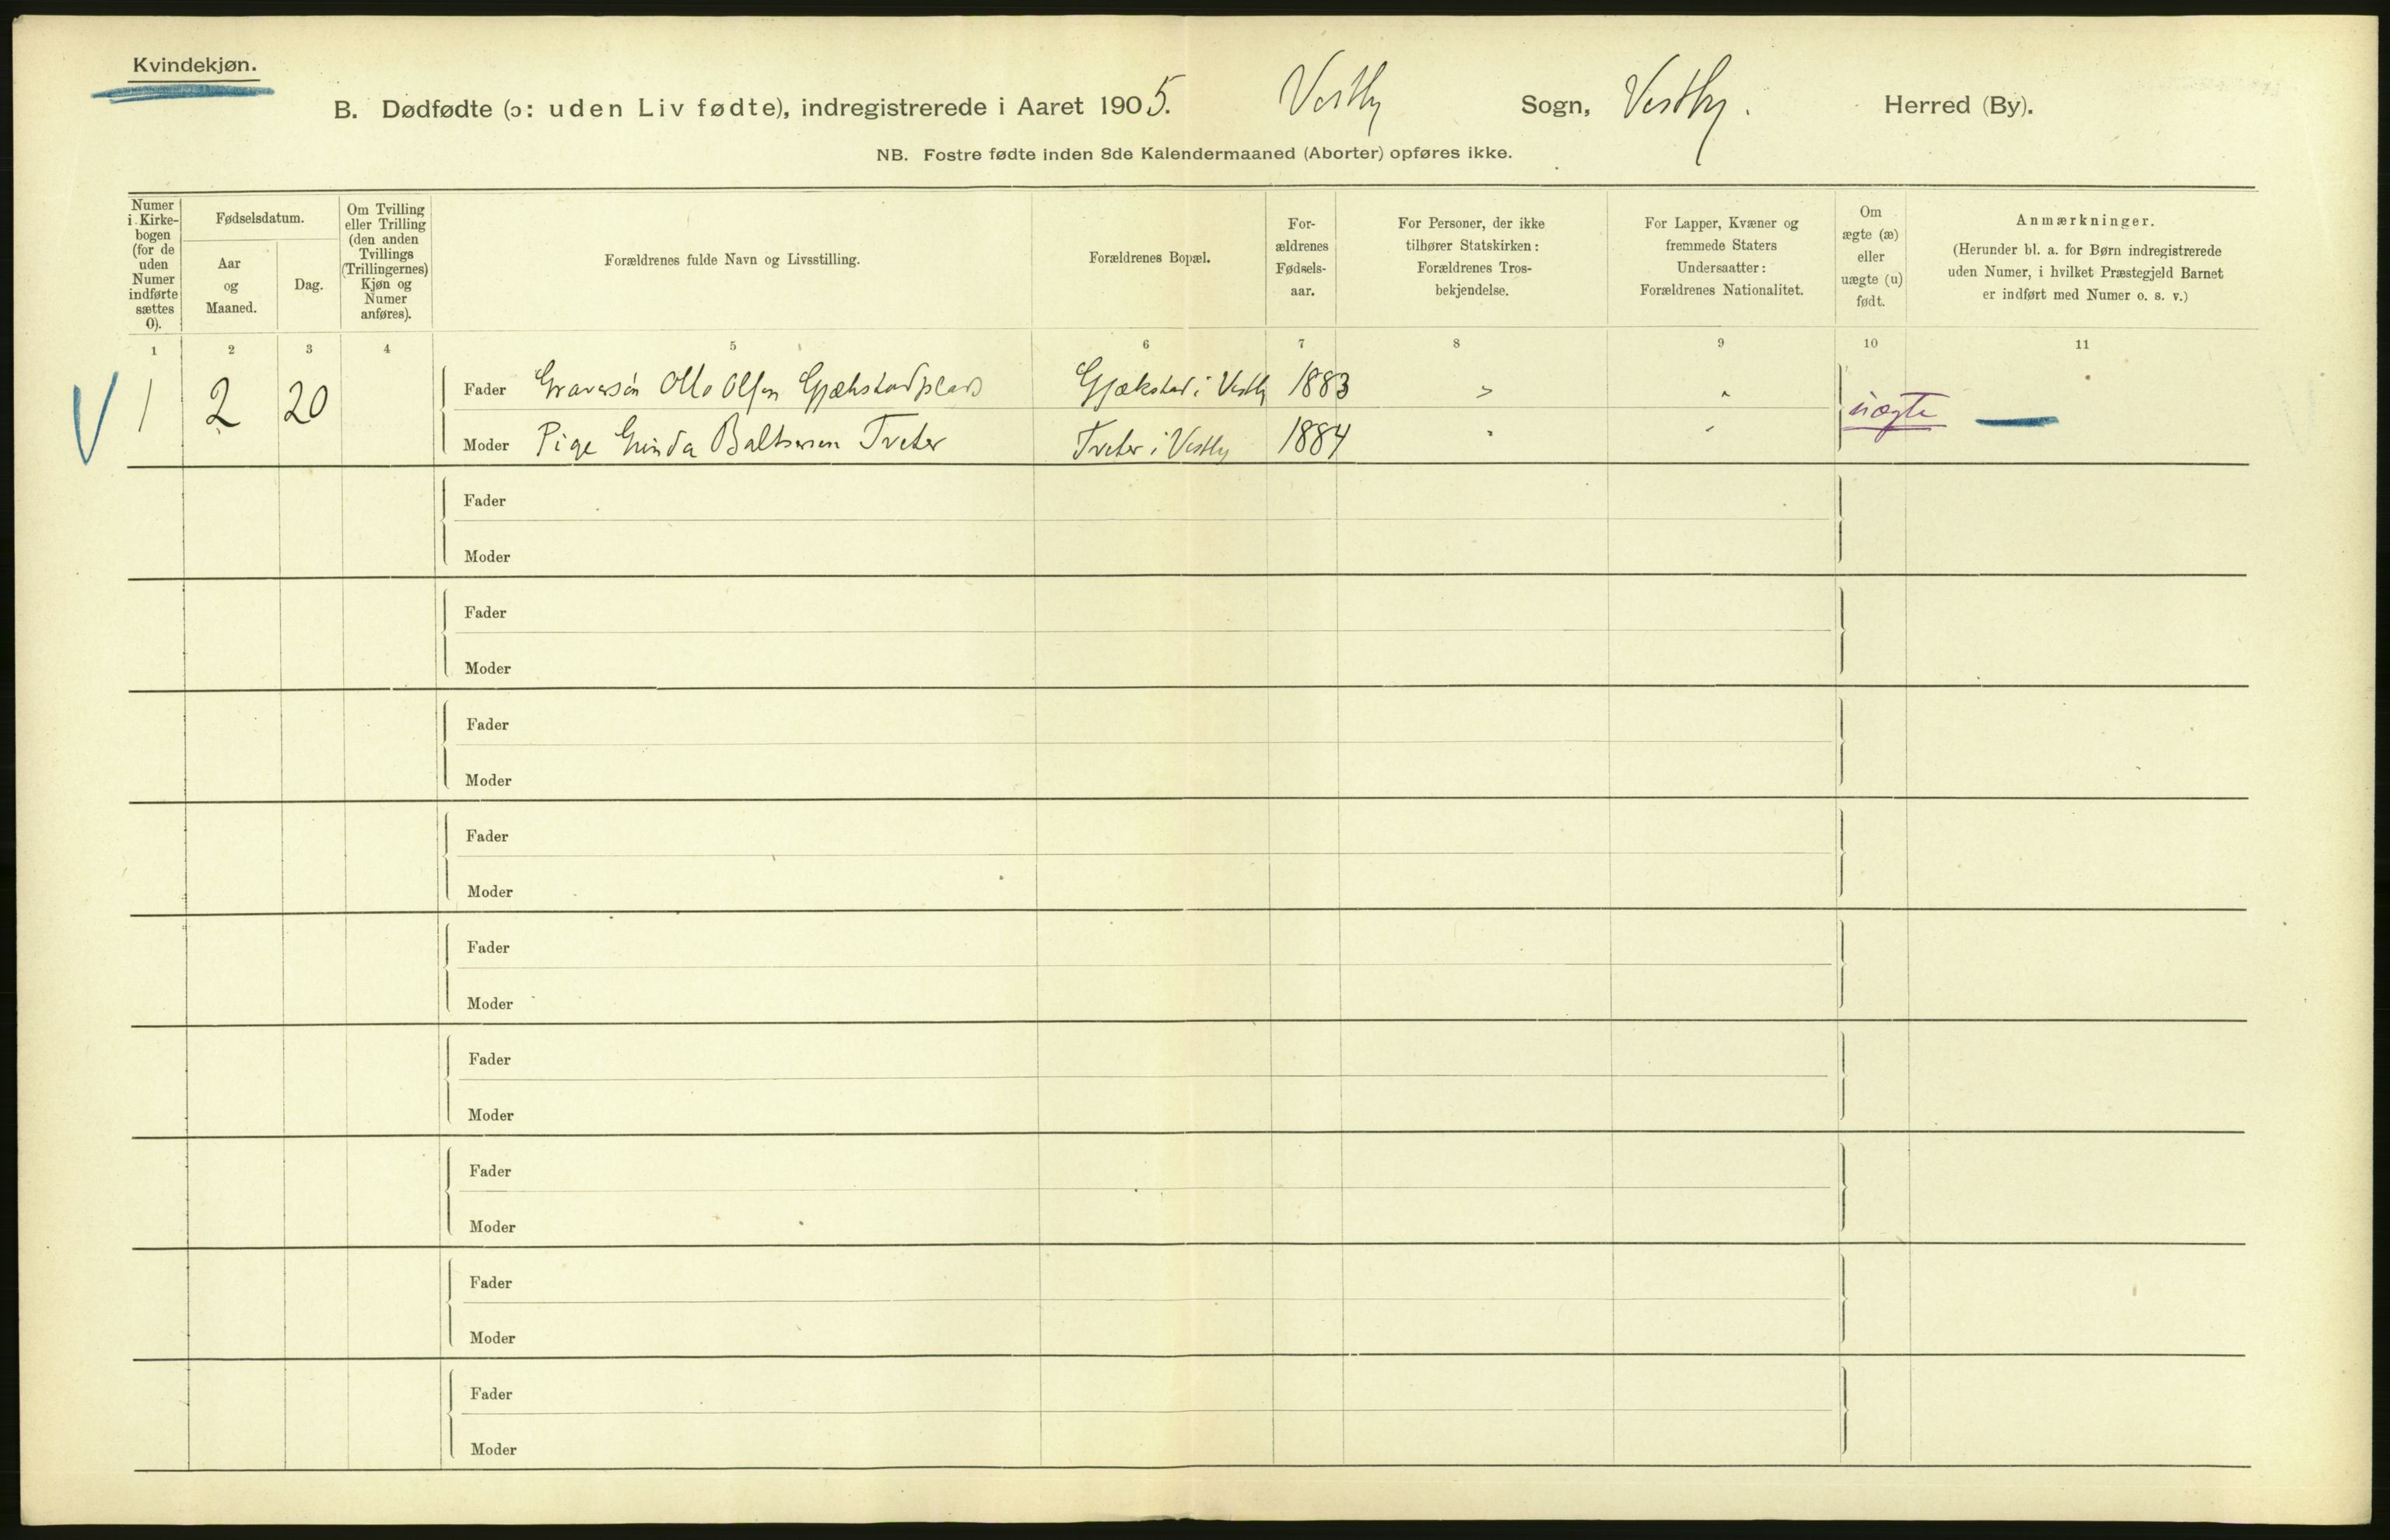 Kvindekjøn.
B. Dødfødte (ɔ: uden Liv fødte), indregistrerede i Aaret 1905. Vestby Sogn, Vestby. Herred (By).
NB. Fostre fødte inden 8de Kalendermaaned (Aborter) opføres ikke.
Numer
i Kirke-
bogen
(for de
uden
Numer
indførte
sættes
0).
Fødselsdatum.
Aar
og
Maaned.
Dag.
Om Tvilling
eller Trilling
(den anden
Tvillings
(Trillingernes)
Kjøn og
Numer
anføres).
Forældrenes fulde Navn og Livsstilling.
Forældrenes Bopæl.
For-
ældrenes
Fødsels-
aar.
For Personer, der ikke
tilhører Statskirken:
Forældrenes Tros-
bekjendelse.
For Lapper, Kvæner og
fremmede Staters
Undersaatter:
Forældrenes Nationalitet.
Om
ægte (æ)
eller
uægte (u)
født.
Anmærkninger.
(Herunder bl. a. for Børn indregistrerede
uden Numer, i hvilket Præstegjeld Barnet
er indført med Numer o. s. v.)
1 2 3 4 5 6 7 8 9 10 11
V 1 2 20
Fader Otto Olsen Gjækstadplads Gjækstad i Vestby 1883 " "
uægte —
Moder Pige Baltsersen Tveter Tveter i Vestby 1884 " "
Fader
Moder
Fader
Moder
Fader
Moder
Fader
Moder
Fader
Moder
Fader
Moder
Fader
Moder
Fader
Moder
Fader
Moder